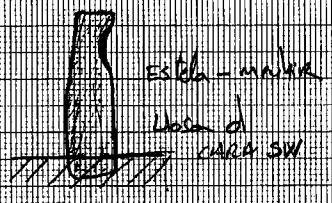 Estela - menhir
Losa d
CARA SW